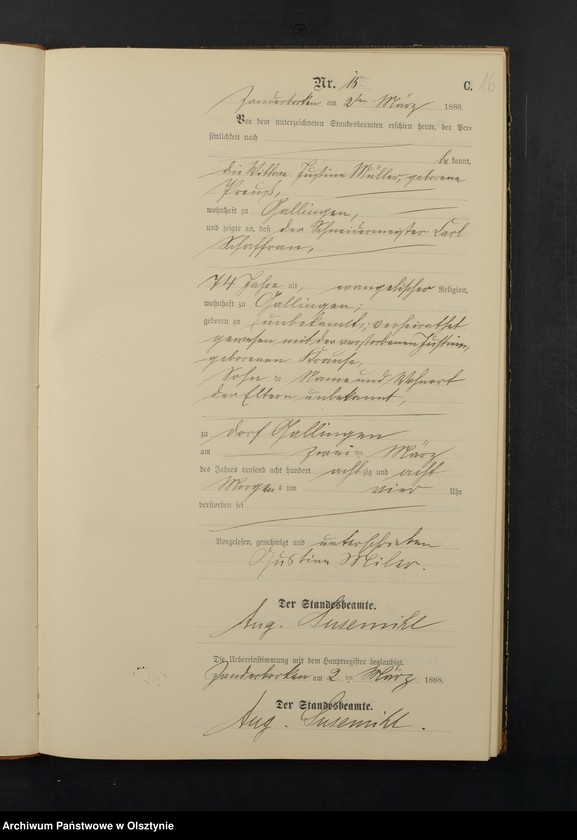 Nr. 15
C. 16
Zanderborken am 2ten März 1888.
Vor dem unterzeichneten Standesbeamten erschien heute, der Per-
sönlichkeit nach
be kannt,
die Wittwe Justine Müller, geborene
Preuß,
wohnhaft zu Gallingen,
und zeigte an, daß der Schneidermeister Carl
Schaffran,
74 Jahre alt, evangelischer Religion,
wohnhaft zu Gallingen;
geboren zu unbekannt; verheirathet
gewesen mit der verstorbenen Justine,
geborenen Krause,
Sohn Name und Wohnort
der Eltern unbekannt,
zu Dorf Gallingen
am zwei ten März
des Jahres tausend acht hundert acht zig und acht
Morgens um vier Uhr
verstorben sei
Vorgelesen, genehmigt und unterschrieben
Justine Miler.
Der Standesbeamte.
Aug. Susemihl
Die Uebereinstimmung mit dem Hauptregister beglaubigt.
Zanderborken am 2 ten März 1888.
Der Standesbeamte.
Aug. Susemihl.
Archiwum Państwowe w Olsztynie